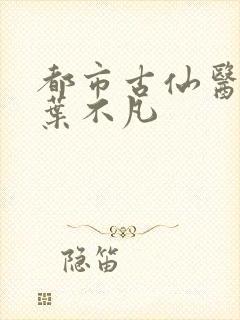 都市古仙醫
葉不凡
隐笛